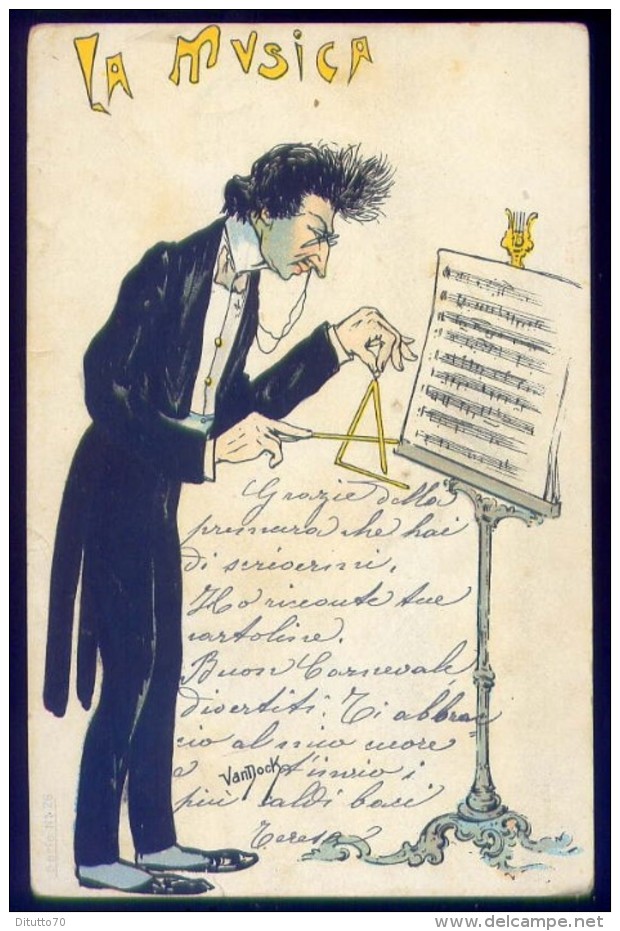 La Mvsica
Grazie della
premura che hai
di scrivermi.
Ho ricevute tue
cartoline.
Buon Carnevale
divertiti. Ti abbrac
cio al mio cuore
e t'invio i
più caldi baci
Teresa
VanDock
Serie N° 26
Ditutto70
www.delcampe.net